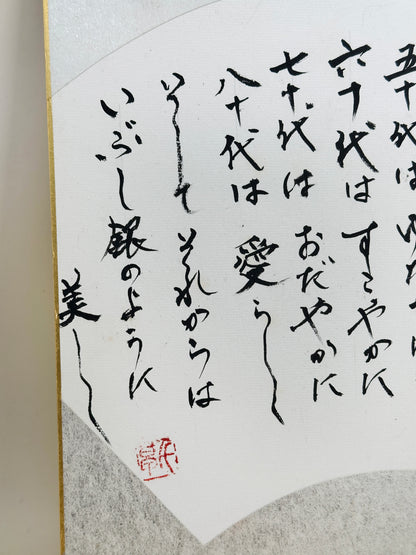 五十代は
六十代は すこやかに
七十代は おだやかに
八十代は 愛らし
いそして それからは
いぶし銀のように
美し